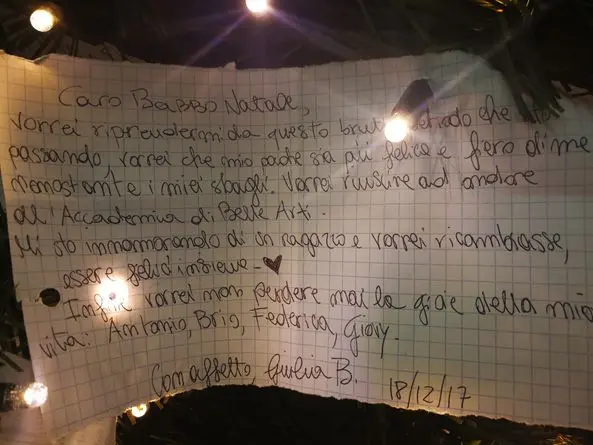 Caro Babbo Natale,
vorrei riprendermi da questo brutto periodo che sto
passando, vorrei che mio padre sia più felice e fiero di me
nonostante i miei sbagli. Vorrei riuscire ad andare
all'Accademia di Belle Arti.
Mi sto innamorando di un ragazzo e vorrei ricambiasse,
essere felici insieme - ♥
Infine vorrei non perdere mai le gioie della mia
vita: Antonio, Brig, Federica, Giovy.
Con affetto, Giulia B. 18/12/17